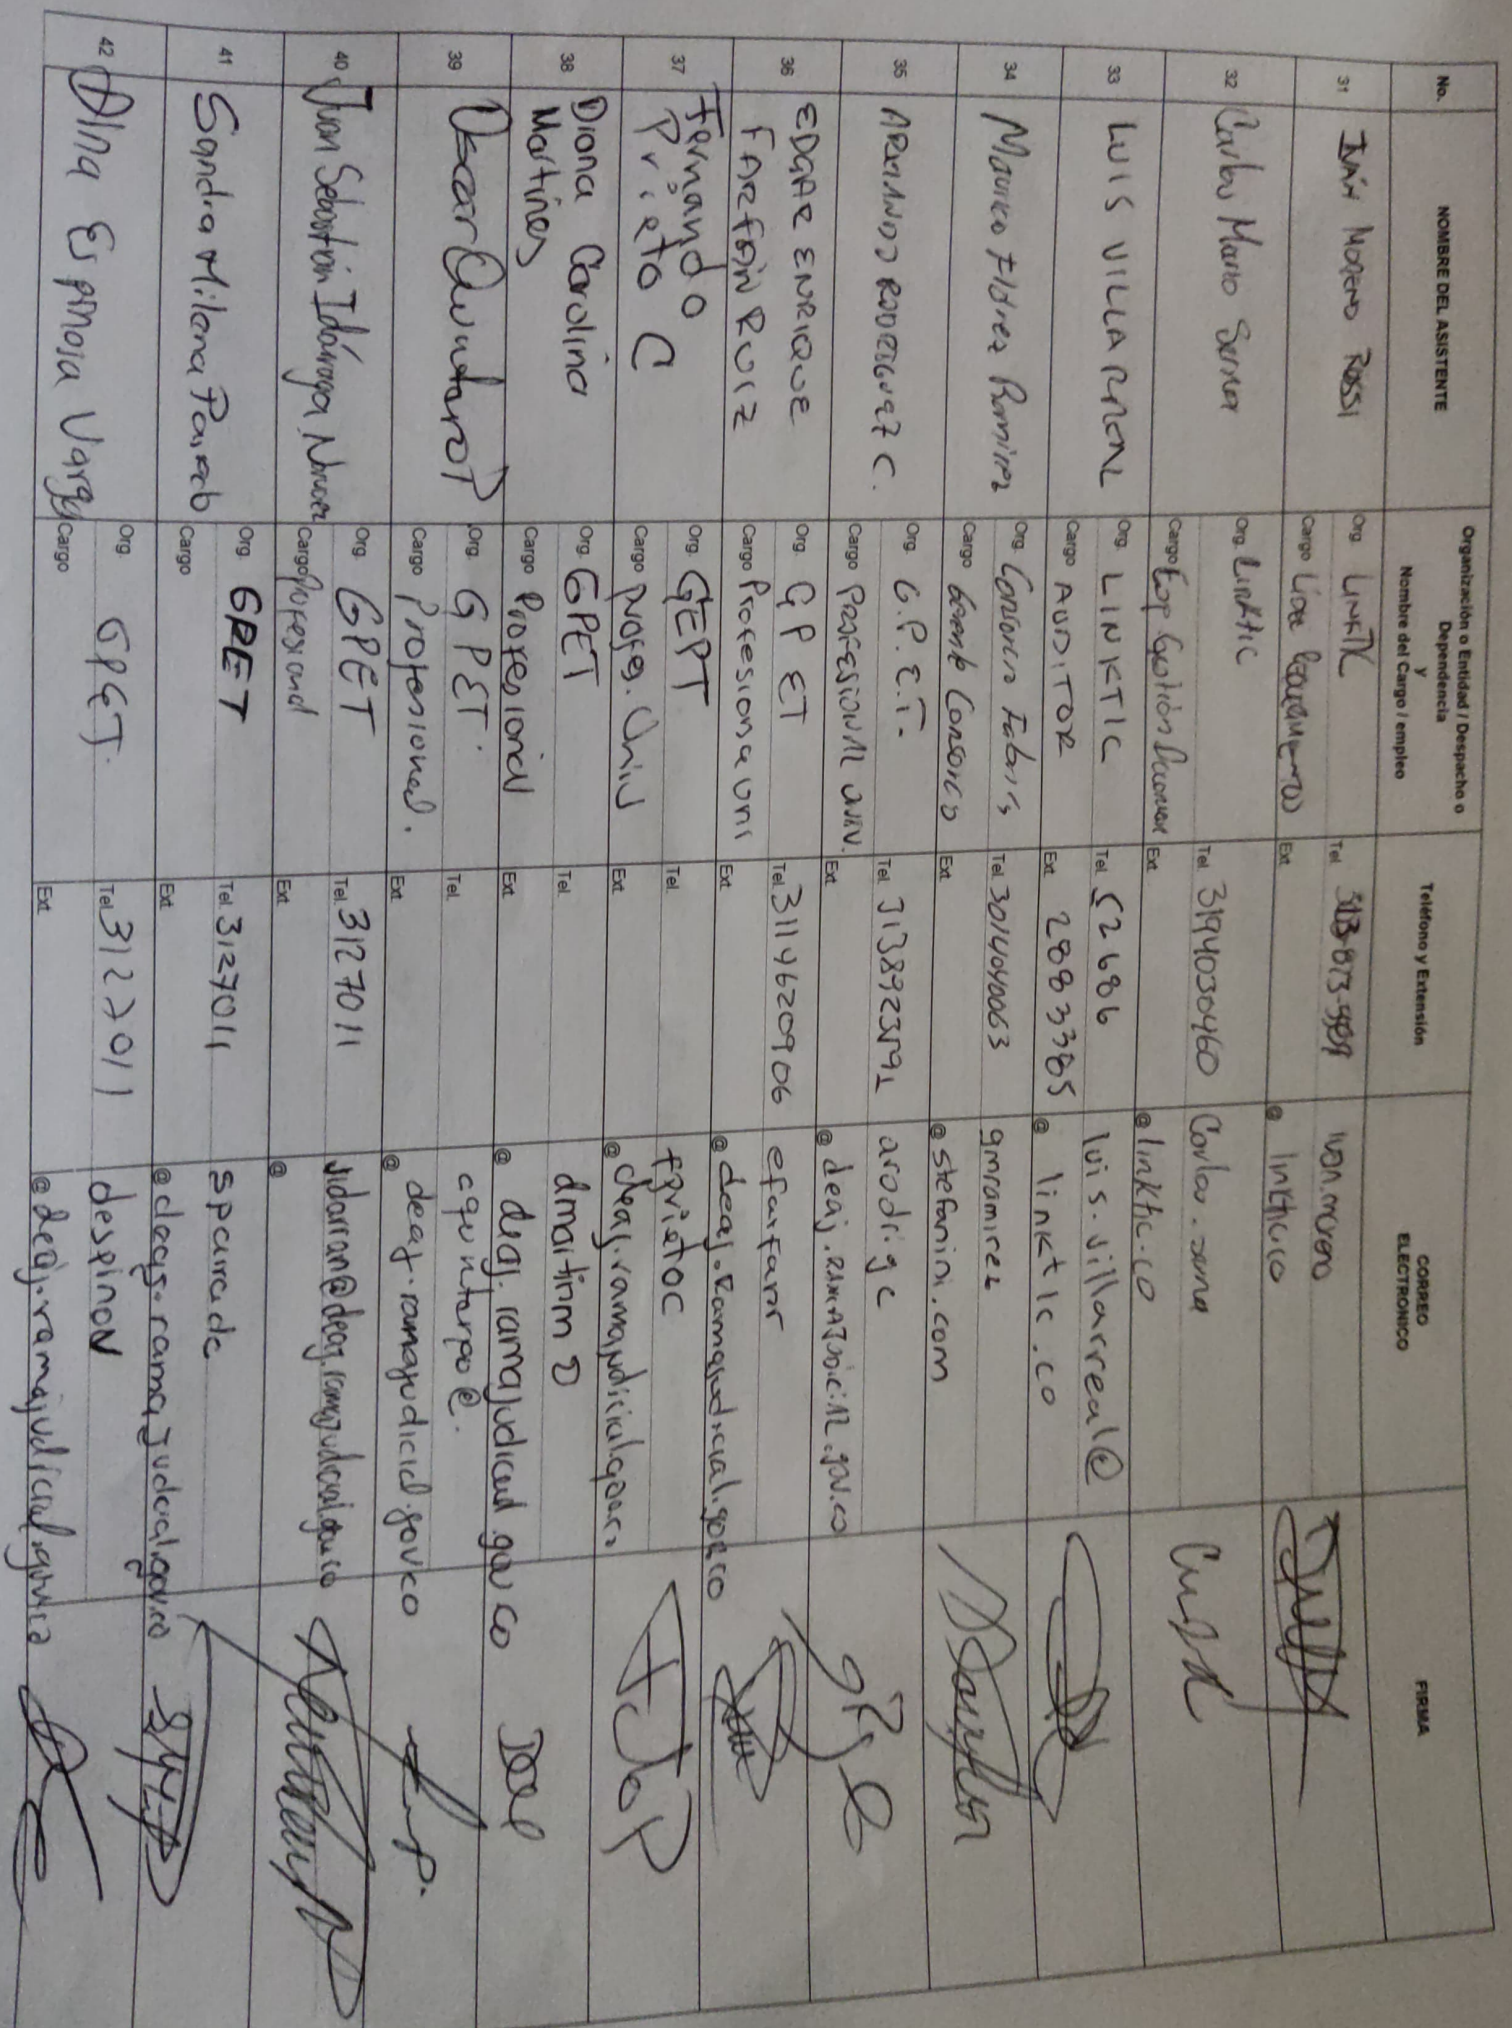 No.
NOMBRE DEL ASISTENTE
Organización o Entidad / Despacho o
Dependencia
y
Nombre del Cargo / empleo
Teléfono y Extensión
CORREO
ELECTRONICO
FIRMA
31
Iván Moreno Rossi
Org. LINKTIC
Cargo Lider
Tel
Ext
ivan.moreno
@ linktic.co
32
Carlos Mario Serna
Org. Linktic
Cargo Exp Gestión
Tel 3194030460
Ext
Carlos.serna
@ linktic.co
33
LUIS VILLARREAL
Org. LINKTIC
Cargo AUDITOR
Tel 52686
Ext 2883385
luis.villarreal@
@ linktic.co
34
Ramirez
Org. Consorcio
Cargo Gerente Consorcio
Tel 3014040063
Ext
gmramirez
@ stefanini.com
35
ARMANDO RODRIGUEZ C.
Org. G.P.E.T.
Cargo PROFESIONAL UNIV.
Tel. 3138923592
Ext
arodrigc
@ deaj.RAMAJUDICIAL.gov.co
36
EDGAR ENRIQUE
FARFAN RUIZ
Org. GPET
Cargo Profesional uni
Tel. 3114620906
Ext
efarfanr
@ deaj.Ramajudicial.gov.co
37
Fernando
Prieto C
Org. GEPT
Cargo profes. Univ
Tel
Ext
fprietoc
@ deaj.ramajudicial.gov.co
38
Diana Carolina
Martines
Org. GPET
Cargo Profesional
Tel.
Ext
dmartinm2
@ deaj.ramajudicial.gov.co
39
Oscar Quintero P
Org. GPET.
Cargo Profesional.
Tel.
Ext
@ deaj.ramajudicial.gov.co
40
Juan Sebastián Idárraga
Org. GPET
Cargo Profesional
Tel. 3127011
Ext
@
41
Sandra Milena
Org. GPET
Cargo
Tel 3127011
Ext
@ deaj.ramajudicial.gov.co
42
Espinosa Vargas
Org. GPET.
Cargo
Tel. 3127011
Ext
despinov
@ deaj.ramajudicial.gov.co